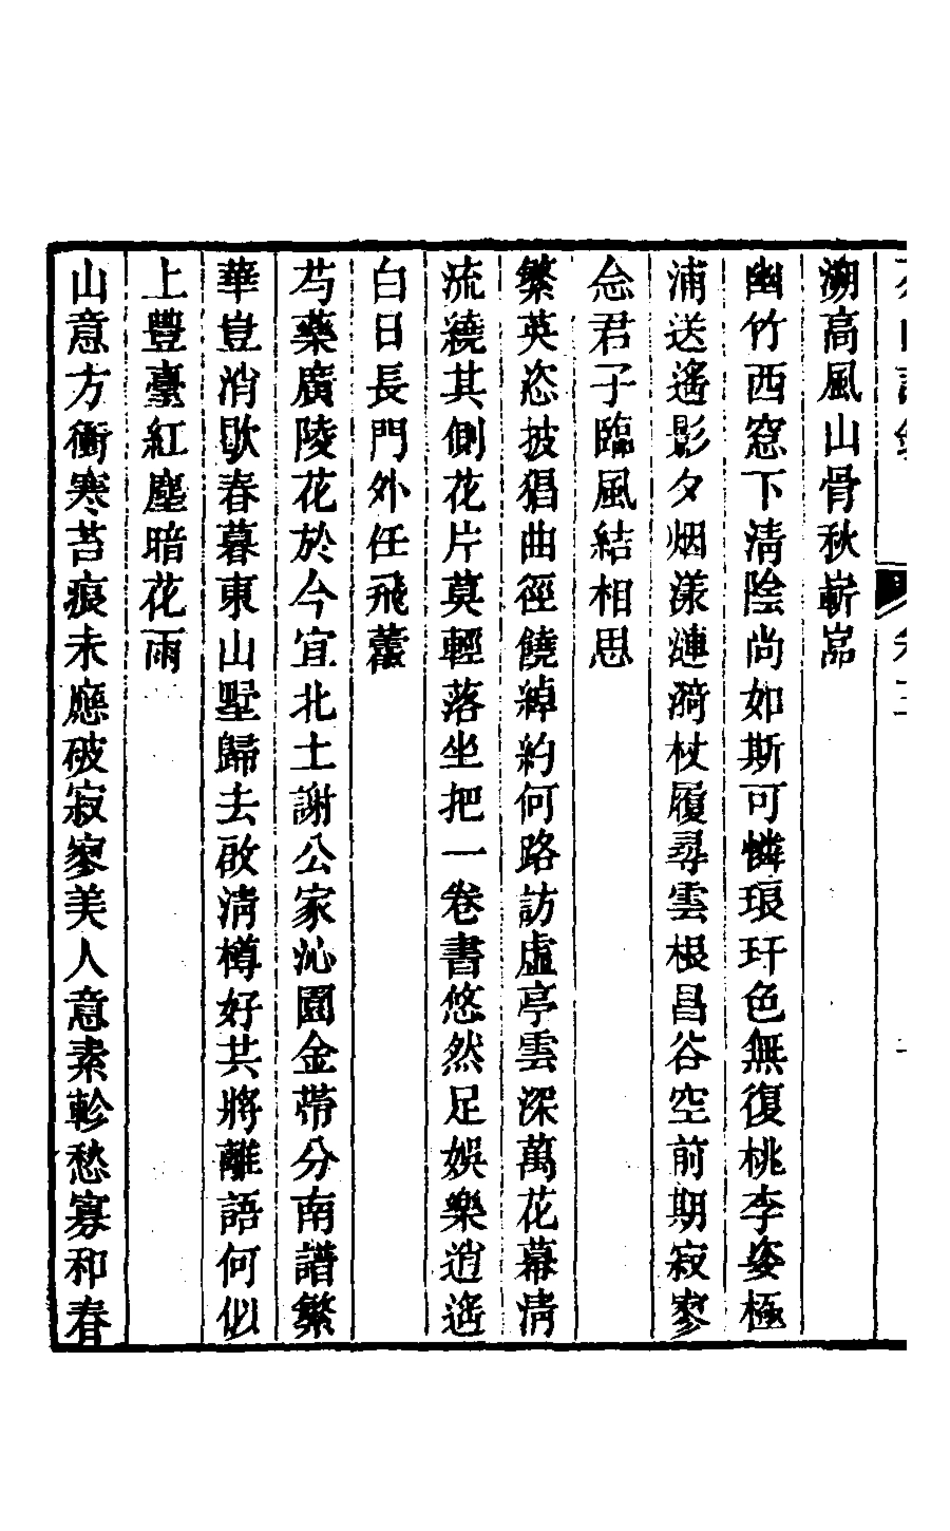 溯高風山骨秋嶄崱
幽竹西窓下淸陰尚如斯可憐琅玕色無復桃李姿極
浦送遙影夕烟漾漣漪杖履尋雲根昌谷空前期寂寥
念君子臨風結相思
繁英恣披猖曲徑饒綽約何路訪虛亭雲深萬花幕淸
流繞其側花片莫輕落坐把一卷書悠然足娛樂逍遙
白日長門外任飛藿
芍藥廣陵花於今宜北土謝公家沁園金帶分南譜繁
華豈消歇春暮東山墅歸去啟淸樽好共將離語何似
上豐臺紅塵暗花雨
山意方衝寒苔痕未應破寂寥美人意素軫愁寡和春